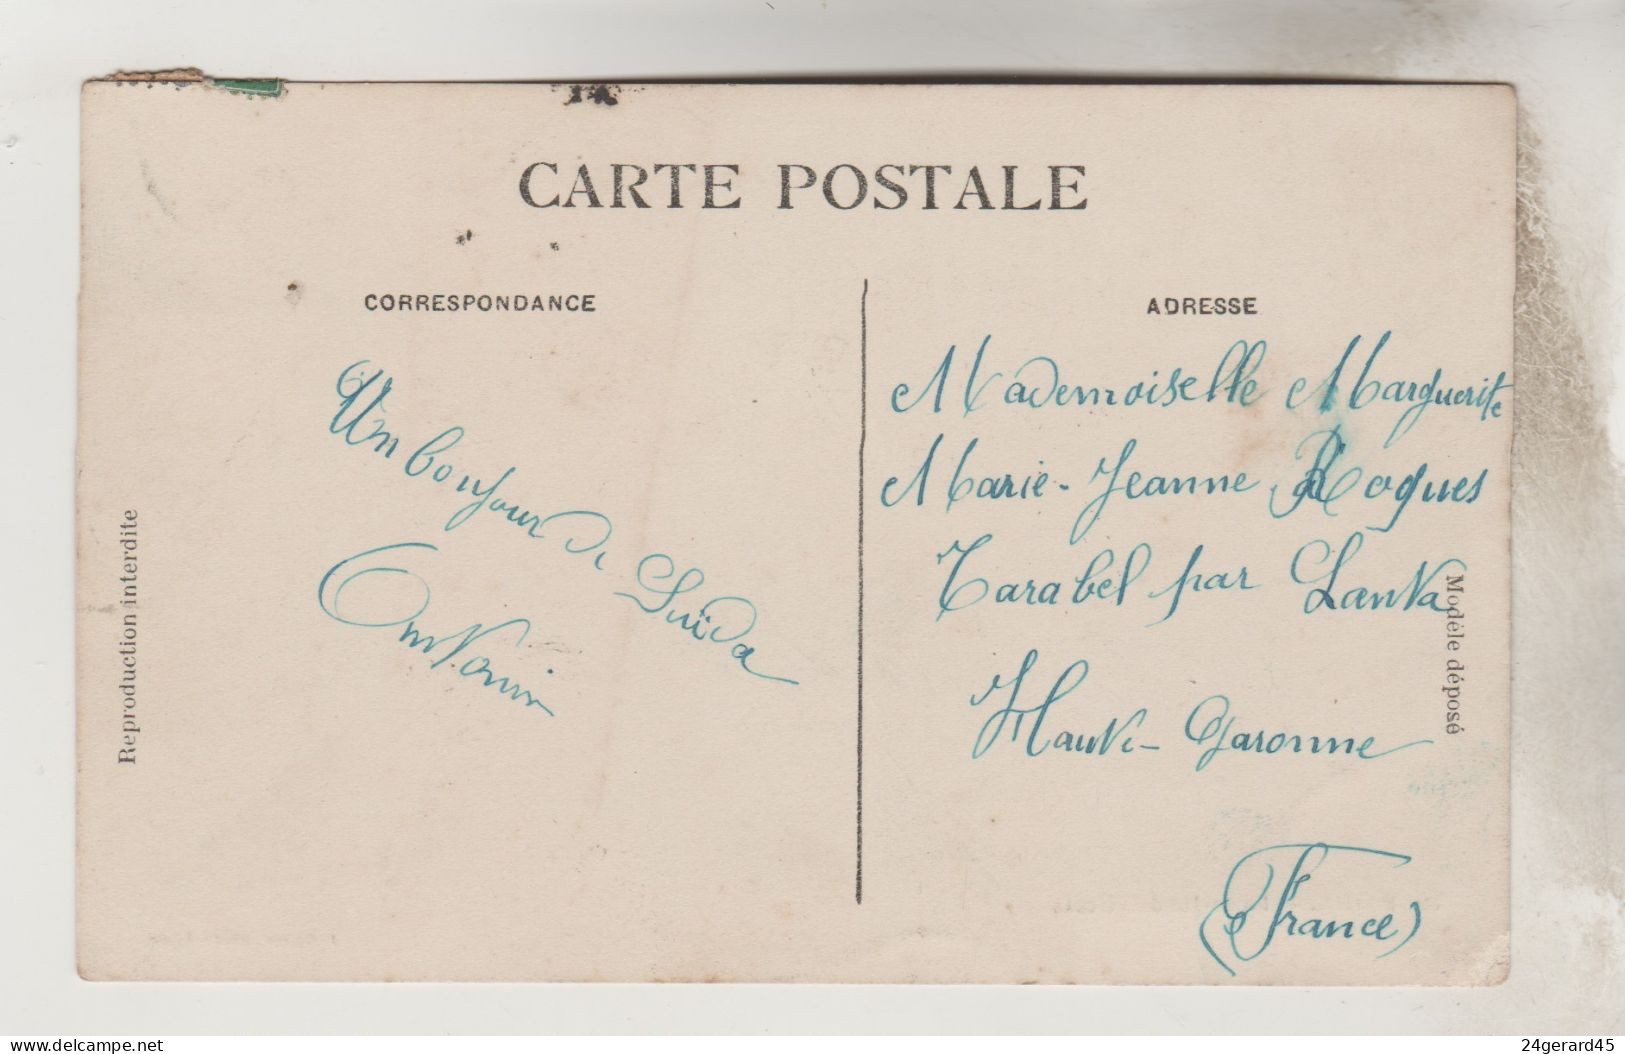 CARTE POSTALE
CORRESPONDANCE
Un bonjour de Suïda
Antonin
ADRESSE
Mademoiselle Marguerite
Marie-Jeanne Roques
Tarabel par Lanta
Haute-Garonne
(France)
Reproduction interdite
Modèle déposé
www.delcampe.net
24gerard45